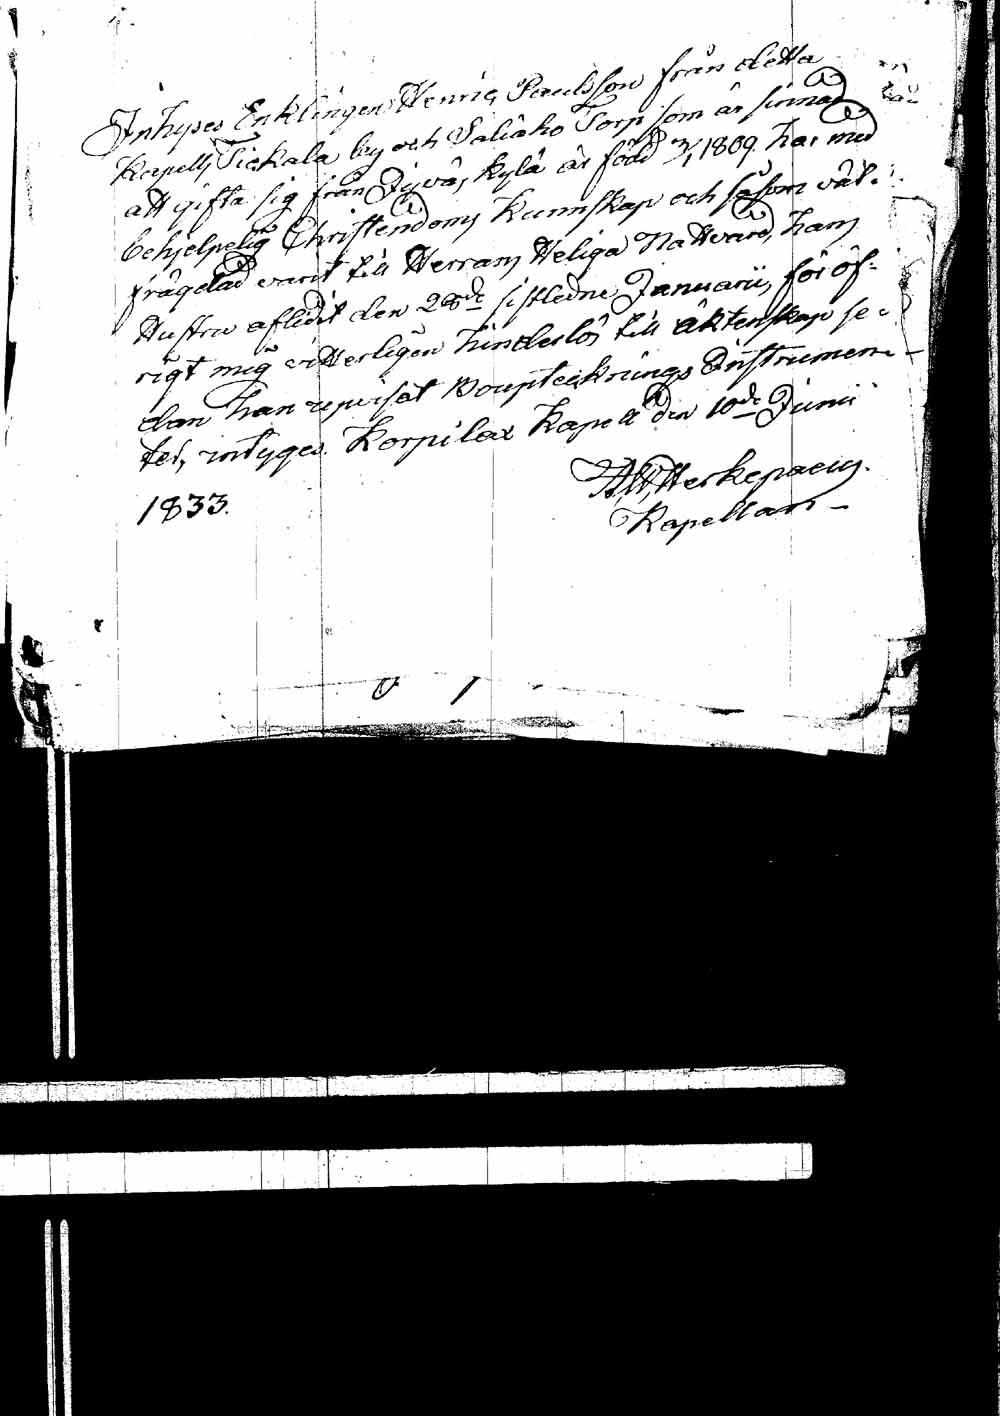 Inhyses Enklingen Henric Paulsson från detta
Kapells Tickala by och Saliaho Torp som är sinnad
att gifta sig från Jyväskylä är född 7/1 1809. har med
behjelpelig Christendoms Kunnskap och såsom väl
frägdad varit till Herrans Heliga Nattvard, hans
Hustru aflidit den 28de sistledne Januarii, för öf-
rigt mig vitterligen hinderlös till äktenskap se-
dan han upvisat Bouptecknings Instrumen-
tet, intygas. Korpilax Kapell den 10de Junii
1833.
Kapellan